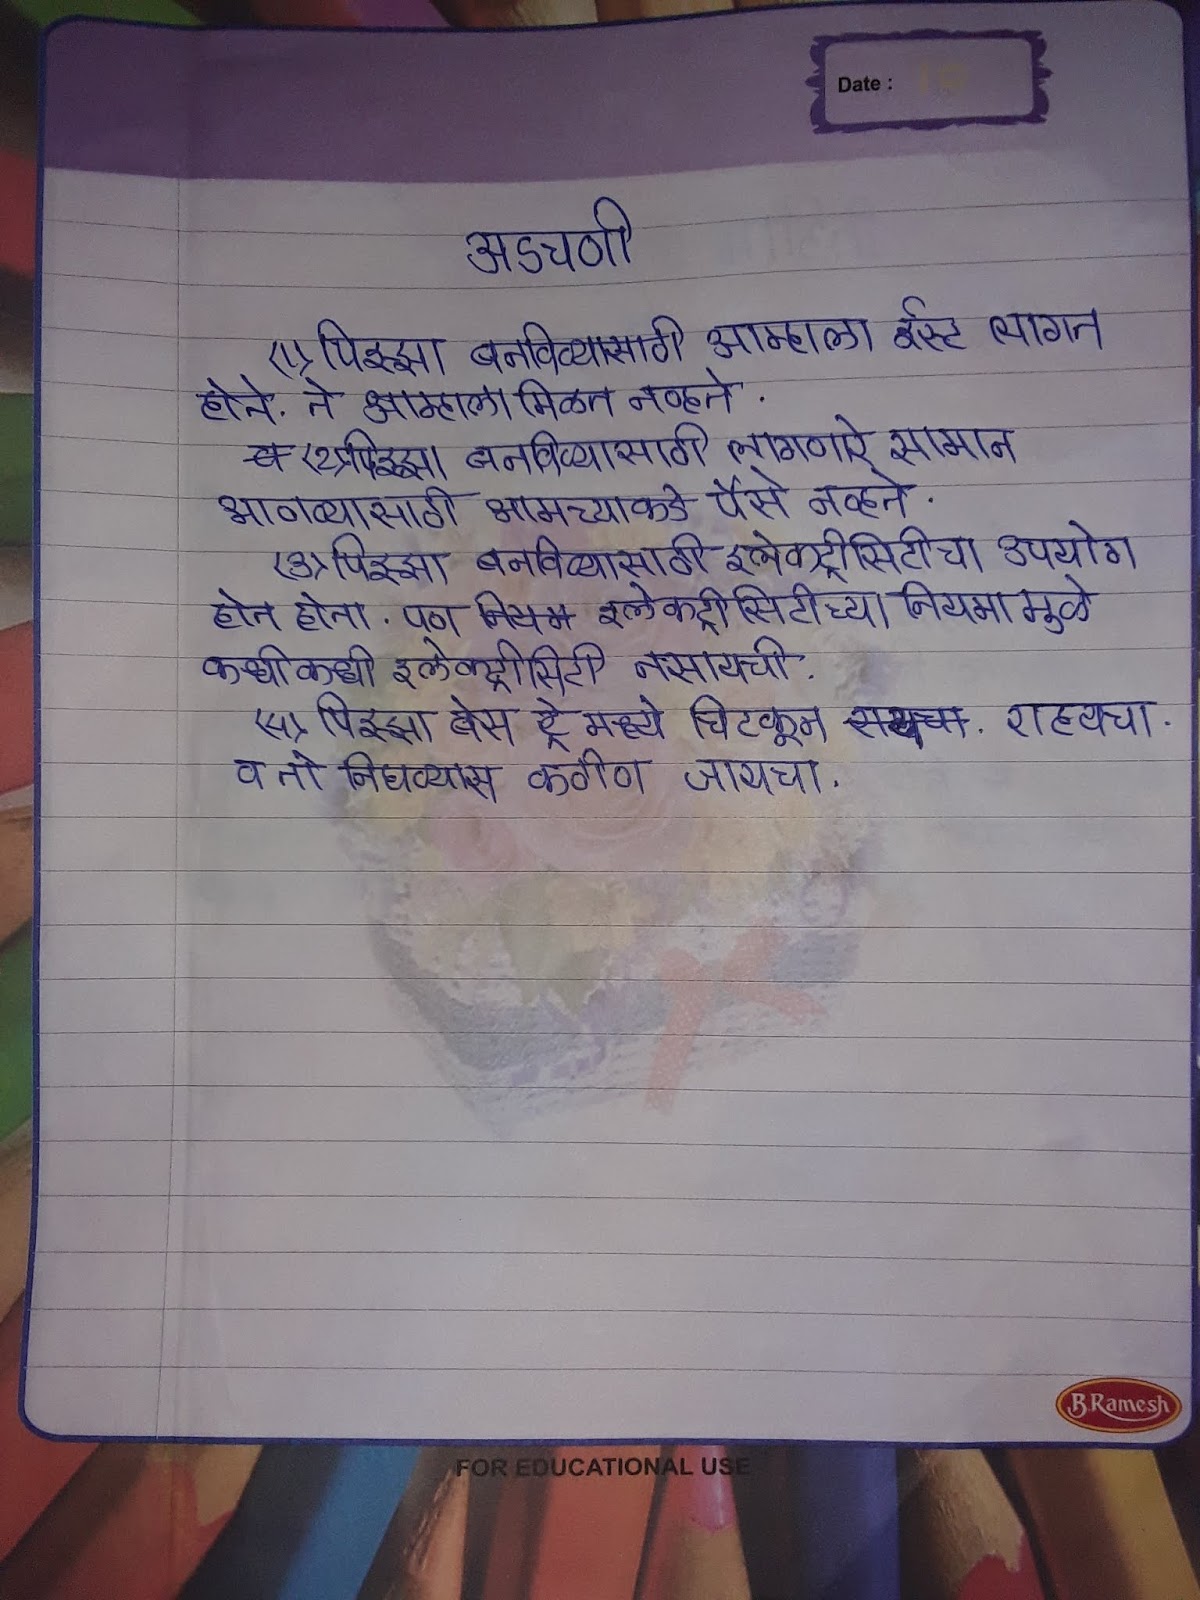 Date :
अडचणी
(१) पिझ्झा बनविण्यासाठी आम्हाला ईस्ट लागत
होते. ते आम्हाला मिळत नव्हते.
(२) पिझ्झा बनविण्यासाठी लागणारे सामान
आणण्यासाठी आमच्याकडे पैसे नव्हते.
(३) पिझ्झा बनविण्यासाठी इलेक्ट्रीसिटीचा उपयोग
होत होता. पण नियम इलेक्ट्रीसिटीच्या नियमामुळे
कधीकधी इलेक्ट्रीसिटी नसायची.
(४) पिझ्झा बेस ट्रे मध्ये चिटकून राहयचा.
व तो निघण्यास कठीण जायचा.
B.Ramesh
FOR EDUCATIONAL USE